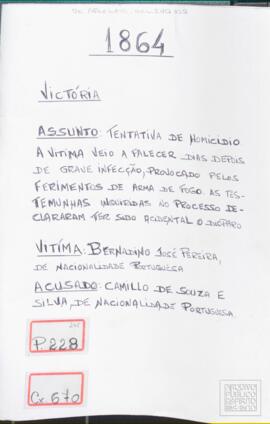 1864
VICTÓRIA
ASSUNTO: TENTATIVA DE HOMICIDIO
A VITIMA VEIO A FALECER DIAS DEPOIS
DE GRAVE INFECÇÃO, PROVOCADO PELOS
FERIMENTOS DE ARMA DE FOGO. AS TES-
TEMUNHAS INQUIRIDAS NO PROCESSO DE-
CLARARAM TER SIDO ACIDENTAL O DISPARO
VITÍMA: BERNADINO JOSÉ PEREIRA,
DE NACIONALIDADE PORTUGUESA
ACUSADO: CAMILLO DE SOUZA E
SILVA, DE NACIONALIDADE PORTUGUESA.
P.228
Cx.670
ARQUIVO
PÚBLICO